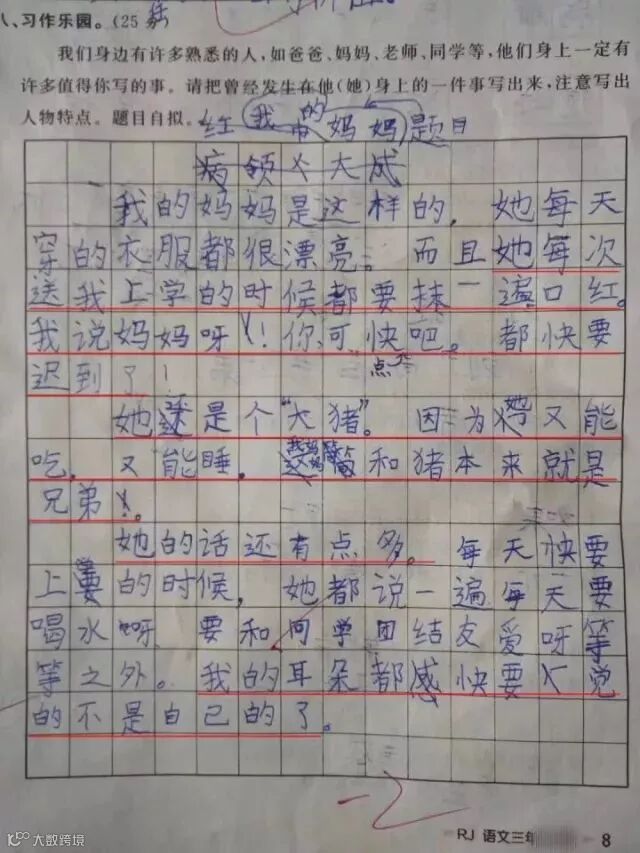 八、习作乐园。(25 分)
我们身边有许多熟悉的人,如爸爸、妈妈、老师、同学等,他们身上一定有
许多值得你写的事。请把曾经发生在他(她)身上的一件事写出来,注意写出
人物特点。题目自拟。
我的妈妈 题目
我的妈妈是这样的,她每天
穿的衣服都很漂亮。而且她每次
送我上学的时候都要抹一遍口红。
我说妈妈呀!你可快点吧。都快要
迟到了!
她还是个“大猪”。因为她又能
吃,又能睡,我妈妈简和猪本来就是
兄弟。
她的话还有点多。每天快要
上学的时候,她都说一遍每天要
喝水呀、要和同学团结友爱呀等
等之外。我的耳朵都感快要觉
的不是自己的了。
RJ 语文三年
8
大数跨境